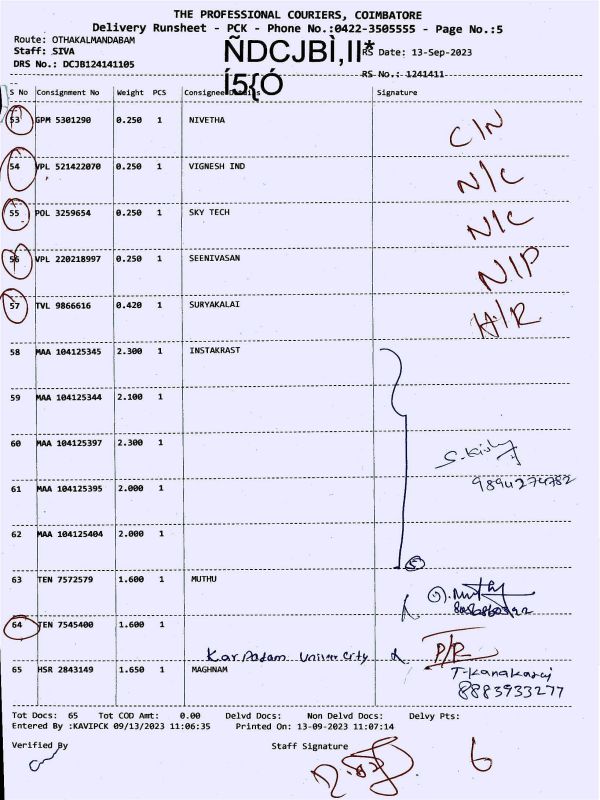 THE PROFESSIONAL COURIERS, COIMBATORE
Delivery Runsheet - PCK - Phone No.:0422-3505555 - Page No.:5
Route: OTHAKALMANDABAM
Staff: SIVA
ÑDCJBÌ,II*
RS Date: 13-Sep-2023
DRS No.: DCJB124141105
Í5{Ó
RS No.: 1241411
S No Consignment No Weight PCS Consignee Details Signature
53 GPM 5301290 0.250 1 NIVETHA C/N
54 VPL 521422070 0.250 1 VIGNESH IND N/C
55 POL 3259654 0.250 1 SKY TECH N/C
56 VPL 220218997 0.250 1 SEENIVASAN N/P
57 TVL 9866616 0.420 1 SURYAKALAI H/R
58 MAA 104125345 2.300 1 INSTAKRAST
59 MAA 104125344 2.100 1
60 MAA 104125397 2.300 1
9894274782
61 MAA 104125395 2.000 1
62 MAA 104125404 2.000 1
5
63 TEN 7572579 1.600 1 MUTHU
64 TEN 7545400 1.600 1 P/R
Karpadam Univercity
65 HSR 2843149 1.650 1 MAGHNAM T-Kanakaraj
8883933277
Tot Docs: 65 Tot COD Amt: 0.00 Delvd Docs: Non Delvd Docs: Delvy Pts:
Entered By :KAVIPCK 09/13/2023 11:06:35 Printed On: 13-09-2023 11:07:14
Verified By Staff Signature 6